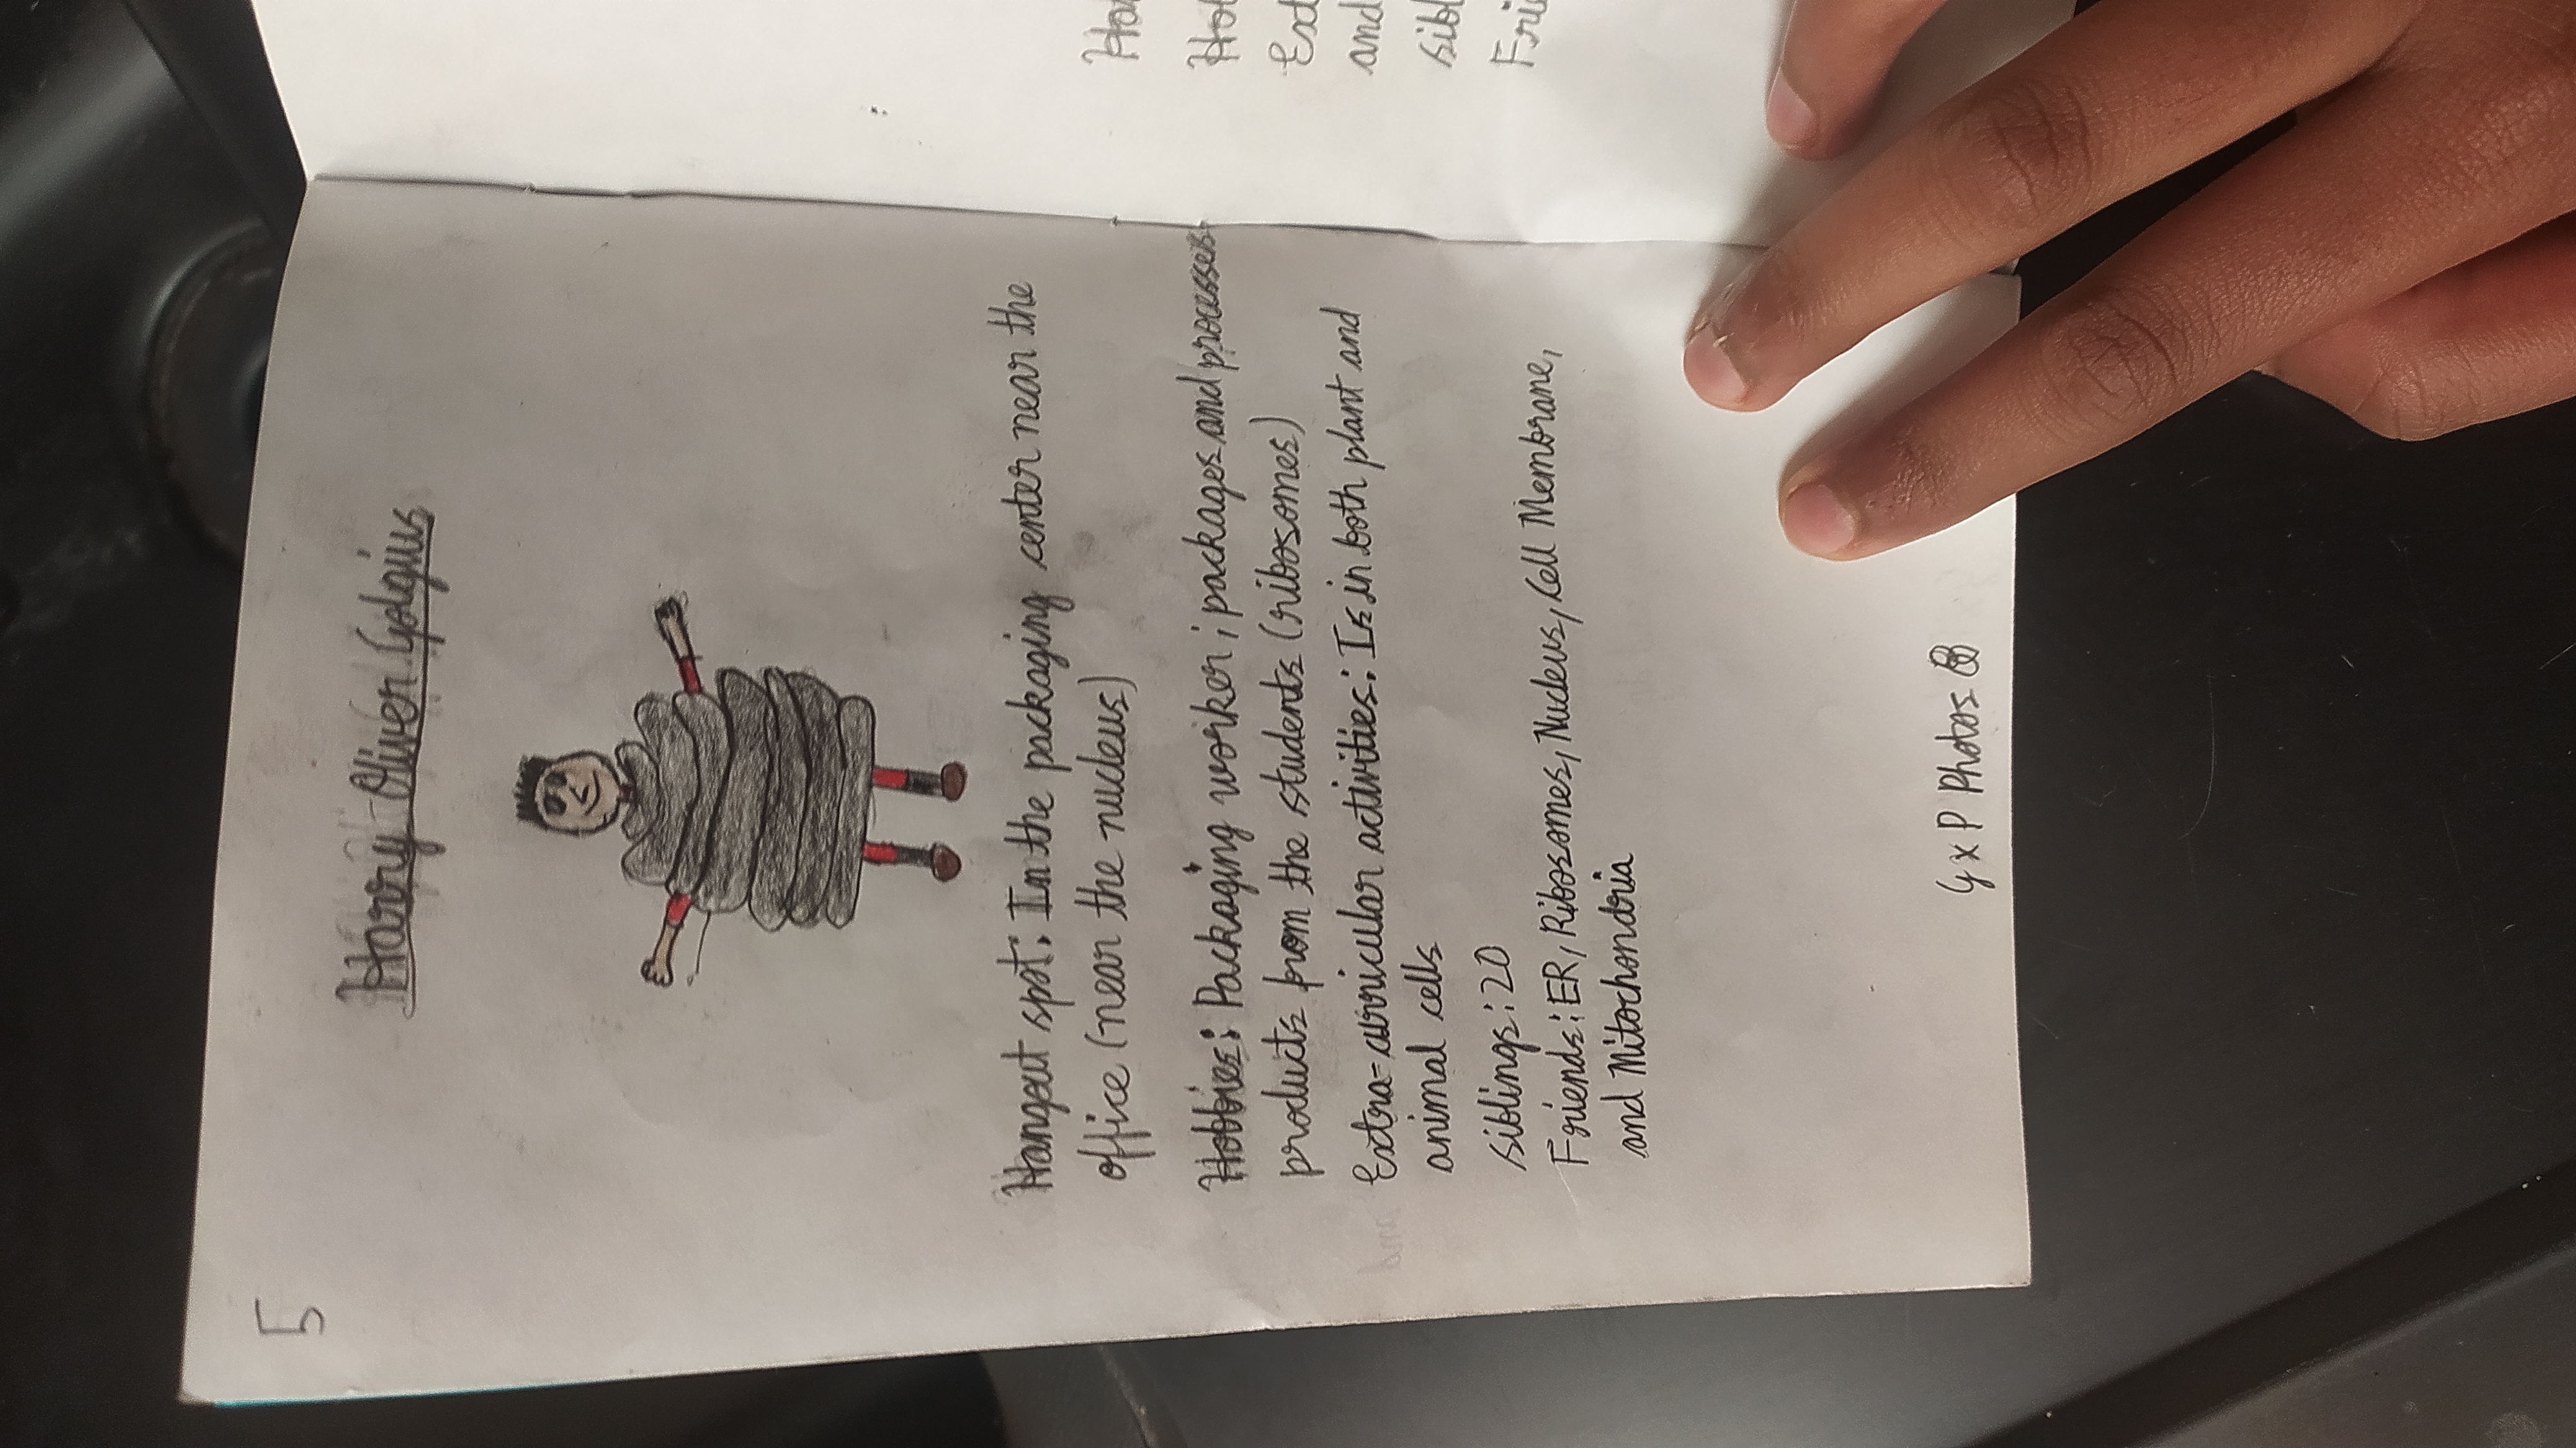 5
Harry Oliver Golgius
Hangout spot: In the packaging center near the
office (near the nucleus)
Hobbies: Packaging worker; packages and processes
products from the students (ribosomes)
Extra=curricular activities: Is in both plant and
animal cells
siblings: 20
Friends: ER, Ribosomes, Nucleus, Cell Membrane,
and Mitochondria
G x P Photos
Ha
Hob
Ext
and
sibl
Frie